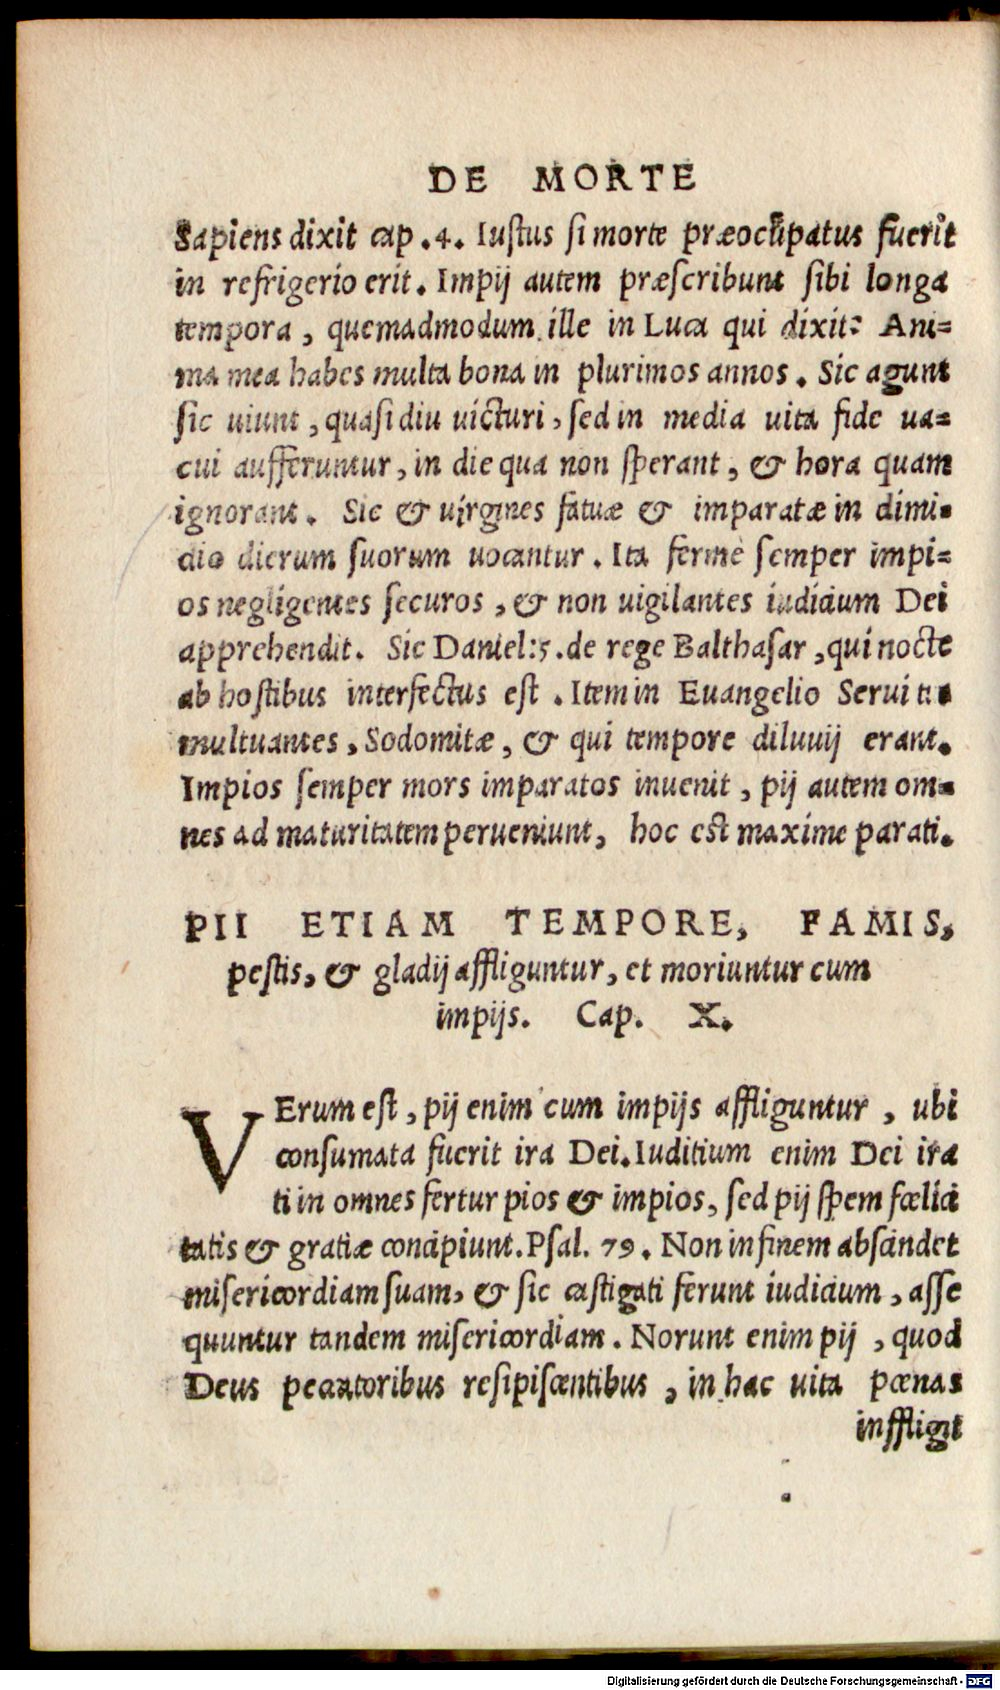 DE MORTE
Sapiens dixit cap. 4. Iustus si morte præocupatus fuerit
in refrigerio erit. Impij autem præscribunt sibi longa
tempora, quemadmodum ille in Luca qui dixit: Ani=
ma mea habes multa bona in plurimos annos. Sic agunt
sic uiunt, quasi diu uicturi, sed in media uita fide ua=
cui aufferuntur, in die qua non sperant, & hora quam
ignorant. Sic & uirgines fatuæ & imparatæ in dimi=
dio dierum suorum uocantur. Ita ferme semper impi=
os negligentes securos, & non uigilantes iudicium Dei
apprehendit. Sic Daniel: 5. de rege Balthasar, qui nocte
ab hostibus interfectus est. Item in Euangelio Serui tu=
multuantes, Sodomitæ, & qui tempore diluuij erant.
Impios semper mors imparatos inuenit, pij autem om=
nes ad maturitatem perueniunt, hoc est maxime parati.
PII ETIAM TEMPORE, FAMIS,
pestis, & gladij affliguntur, et moriuntur cum
impijs. Cap. X.
VErum est, pij enim cum impijs affliguntur, ubi
consumata fuerit ira Dei. Iuditium enim Dei ira
ti in omnes fertur pios & impios, sed pij spem fœlici
tatis & gratiæ concipiunt. Psal. 79. Non in finem abscindet
misericordiam suam, & sic castigati ferunt iudicium, asse
quuntur tandem misericordiam. Norunt enim pij, quod
Deus peccatoribus resipiscentibus, in hac uita pœnas
inffligit
Digitalisierung gefördert durch die Deutsche Forschungsgemeinschaft - DFG